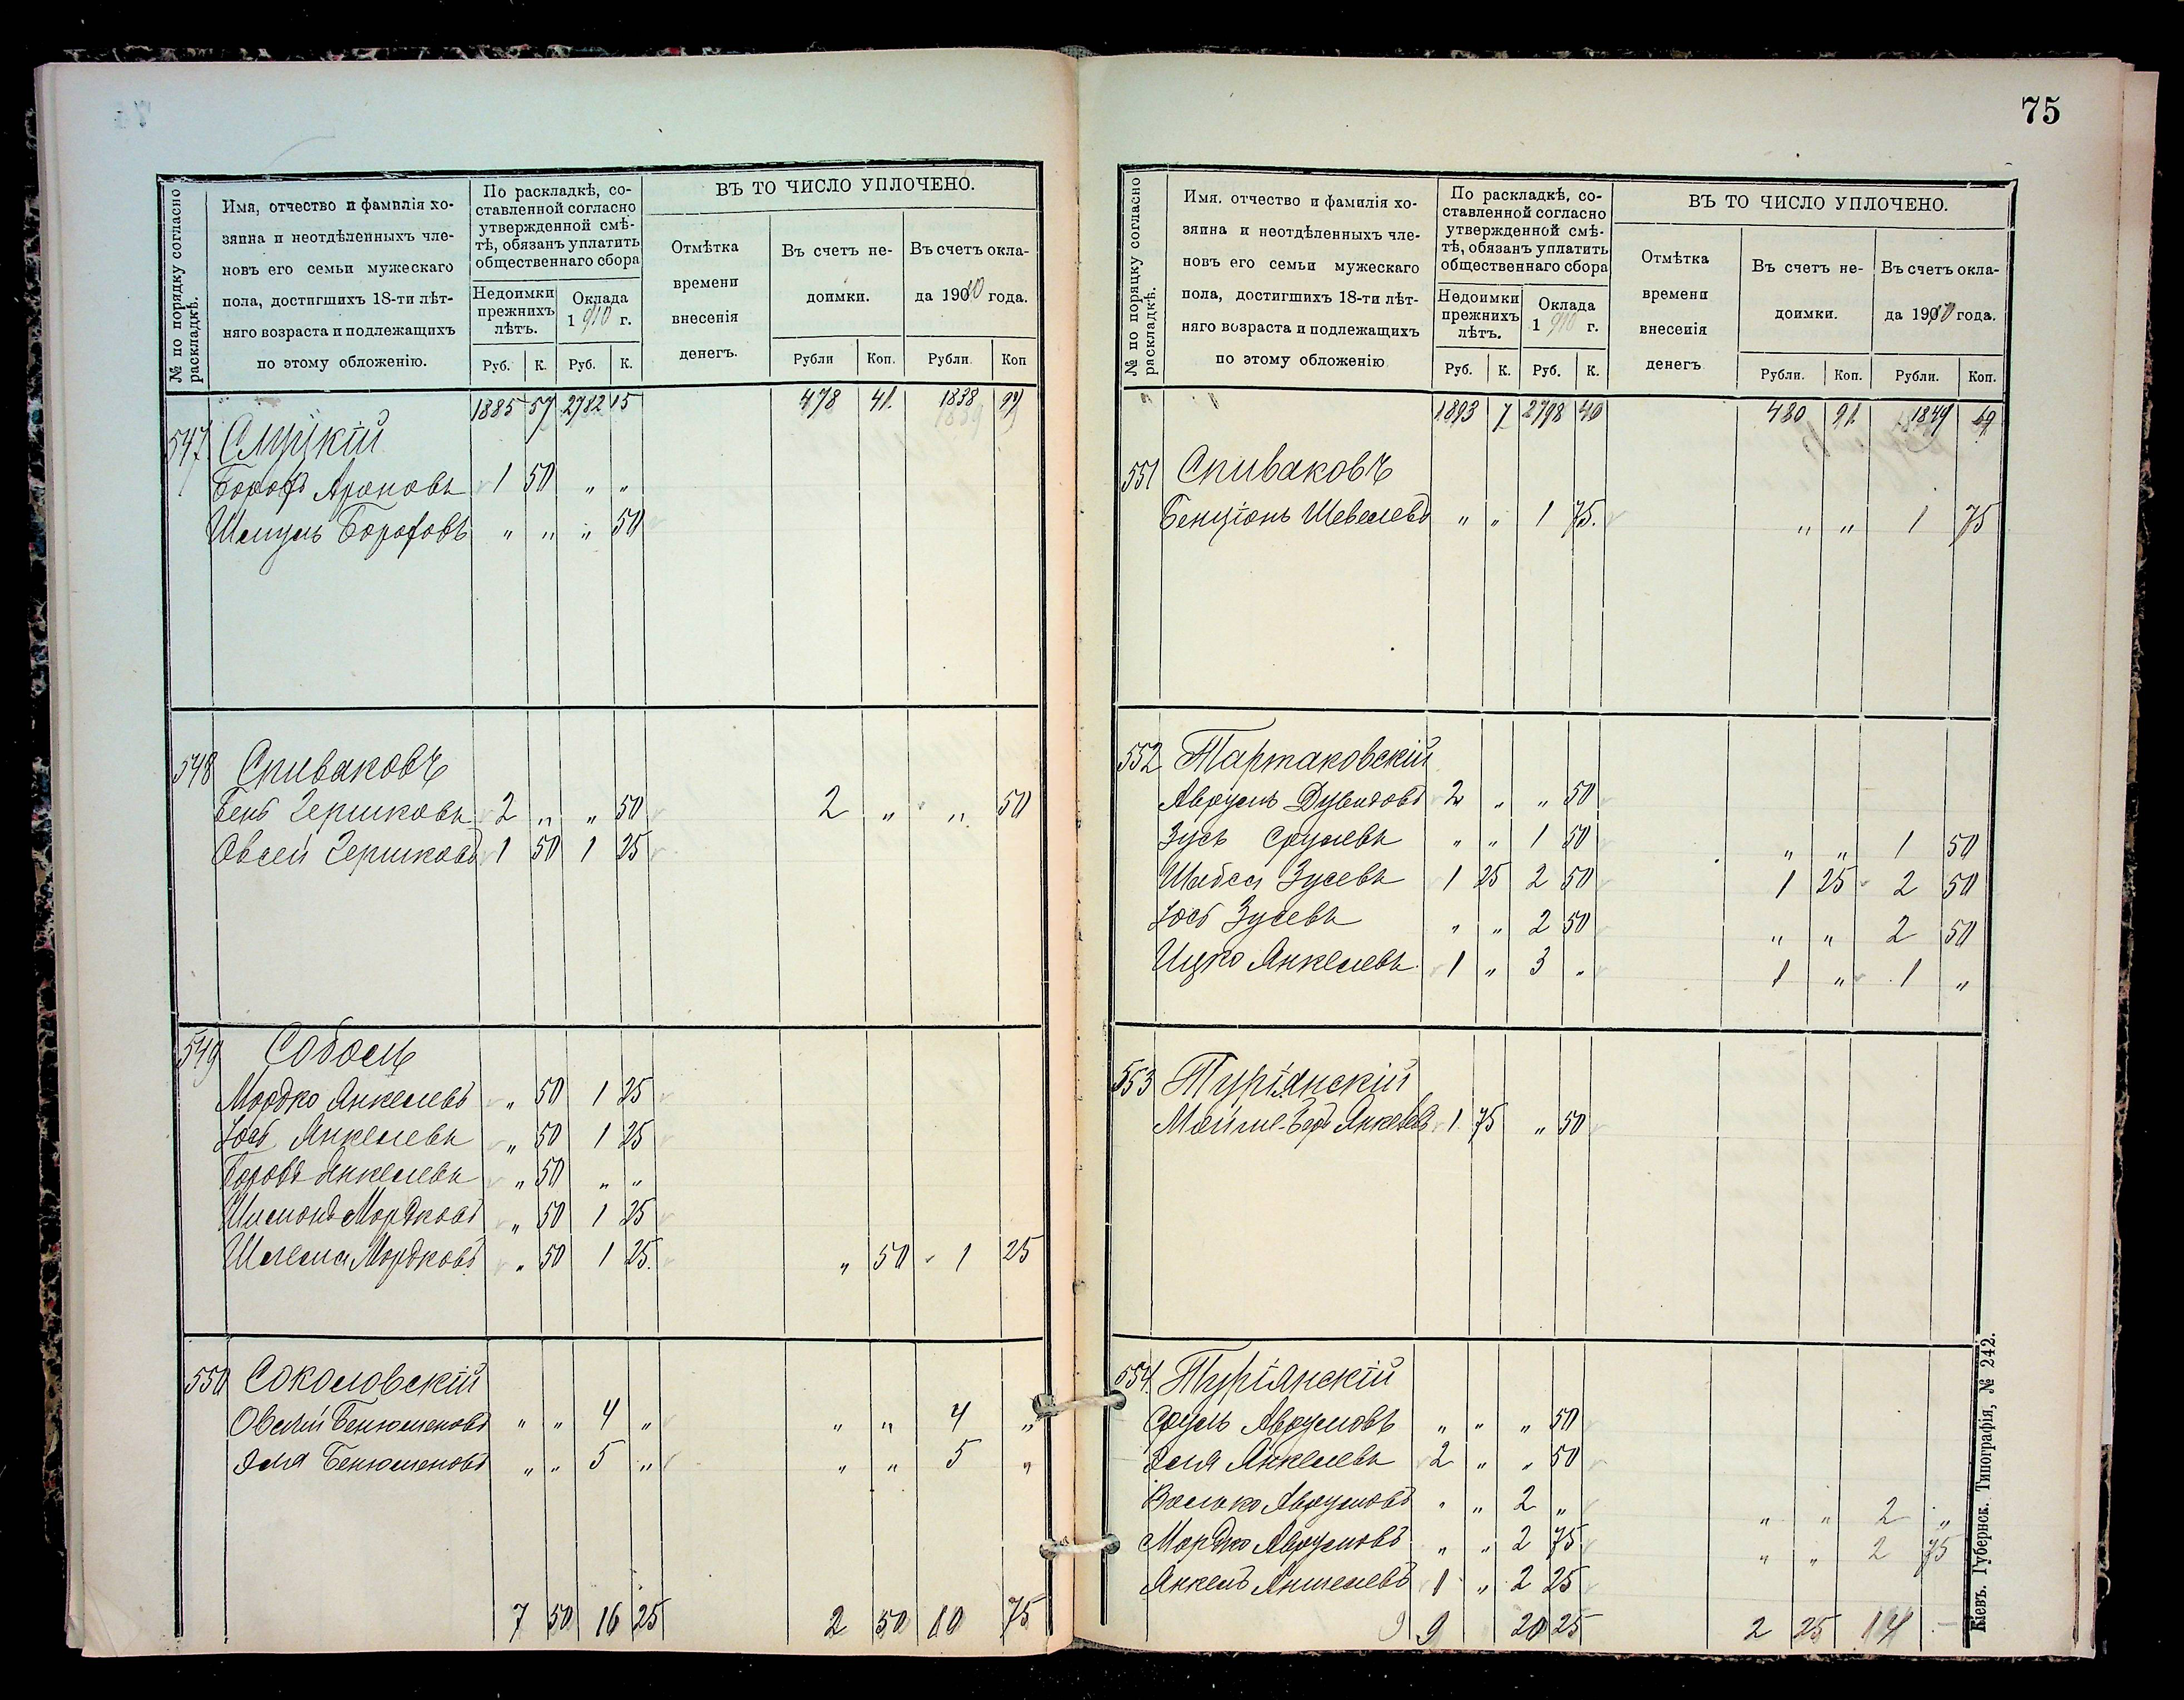 № по порядку согласно раскладкѣ.
Имя, отчество и фамилія хо-
зяина и неотдѣленныхъ чле-
новъ его семьи мужескаго
пола, достигшихъ 18-ти лѣт-
няго возраста и подлежащихъ
по этому обложенію.
По раскладкѣ, со-
ставленной согласно
утвержденной смѣ-
тѣ, обязанъ уплатить
общественнаго сбора
Недоимки
прежнихъ
лѣтъ.
Оклада
1910 г.
Руб. К. Руб. К.
ВЪ ТО ЧИСЛО УПЛОЧЕНО.
Отмѣтка
времени
внесенія
денегъ.
Въ счетъ не-
доимки.
Въ счетъ окла-
да 1910 года.
Рубли Коп. Рубли Коп
1885 57 2782 15 478 41 1838 99
547 Слуцкій
Борохъ Ароновъ 1 50 " "
Шмуль Бороховъ " " " 50
548 Спиваковъ
Бень Гершковъ 2 " " 50 2 " " 50
Овсей Гершковъ 1 50 1 25
549 Соболь
Мордко Янкелевъ " 50 1 25
Іосъ Янкелевъ " 50 1 25
Янкелевъ " 50 " "
Шимонъ Мордковъ " 50 1 25
Шлема Мордковъ " 50 1 25 " 50 1 25
550 Соколовскій
Овсей Бенюменовъ " " 4 " " " 4 "
Эля Бенюменовъ " " 5 " " " 5 "
7 50 16 25 2 50 10 75
75
№ по поряцку согласно раскладкѣ.
Имя, отчество и фамилія хо-
зяина и неотдѣленныхъ чле-
новъ его семьи мужескаго
пола, достигшихъ 18-ти лѣт-
няго возраста и подлежащихъ
по этому обложенію
По раскладкѣ, со-
ставленной согласно
утвержденной смѣ-
тѣ, обязанъ уплатить
общественнаго сбора
Недоимки
прежнихъ
лѣтъ.
Оклада
1910 г.
Руб. К. Руб. К.
ВЪ ТО ЧИСЛО УПЛОЧЕНО.
Отмѣтка
времени
внесенія
денегъ
Въ счетъ не-
доимки.
Въ счетъ окла-
да 1910 года.
Рубли. Коп. Рубли. Коп.
1893 7 2798 40 480 91 1849 69
551 Спиваковъ
Бенціонъ Шевелевъ " " 1 75 " " 1 75
552 Тартаковскій
Аврумъ Дувидовъ 2 " " 50
Зусь Срулевъ " " 1 50 " " 1 50
Шабса Зусевъ 1 25 2 50 1 25 2 50
Іосъ Зусевъ " " 2 50 " " 2 50
Ицко Янкелевъ 1 " 3 " 1 " 1 "
553 Туріянскій
Янкелевъ 1 75 " 50
554 Туріянскій
Сруль Аврумовъ " " " 50
Эеля Янкелевъ 2 " " 50
Волько Аврумовъ " " 2 " " " 2 "
Мордко Аврумовъ " " 2 75 " " 2 75
Янкель Аншелевъ 1 " 2 25
9 9 20 25 2 25 14 -
Кіевъ. Губернск. Типографія, № 242.